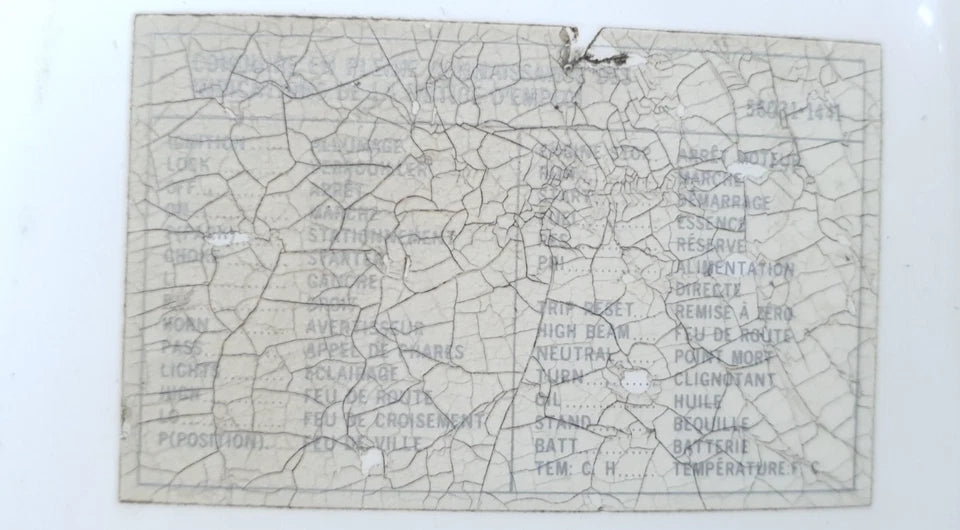 CONDUIRE EN PLEINE CONNAISSANCE DES
56031-1441
IGNITION...... ALLUMAGE
LOCK.......... VERROUILLER
OFF........... ARRÊT
ON............ MARCHE
P(PARK)....... STATIONNEMENT
CHOKE......... STARTER
L............. GAUCHE
R............. DROIT
HORN.......... AVERTISSEUR
PASS.......... APPEL DE PHARES
LIGHTS........ ECLAIRAGE
HIGH.......... FEU DE ROUTE
LO............ FEU DE CROISEMENT
P(POSITION)... FEU DE VILLE
ENGINE STOP... ARRÊT MOTEUR
RUN........... MARCHE
START......... DEMARRAGE
FUEL.......... ESSENCE
RES........... RÉSERVE
PRI........... ALIMENTATION
DIRECTE
TRIP RESET.... REMISE À ZERO
HIGH BEAM..... FEU DE ROUTE
NEUTRAL....... POINT MORT
TURN.......... CLIGNOTANT
OIL........... HUILE
STAND......... BEQUILLE
BATT.......... BATTERIE
TEM: C. H..... TEMPÉRATURE:F. C